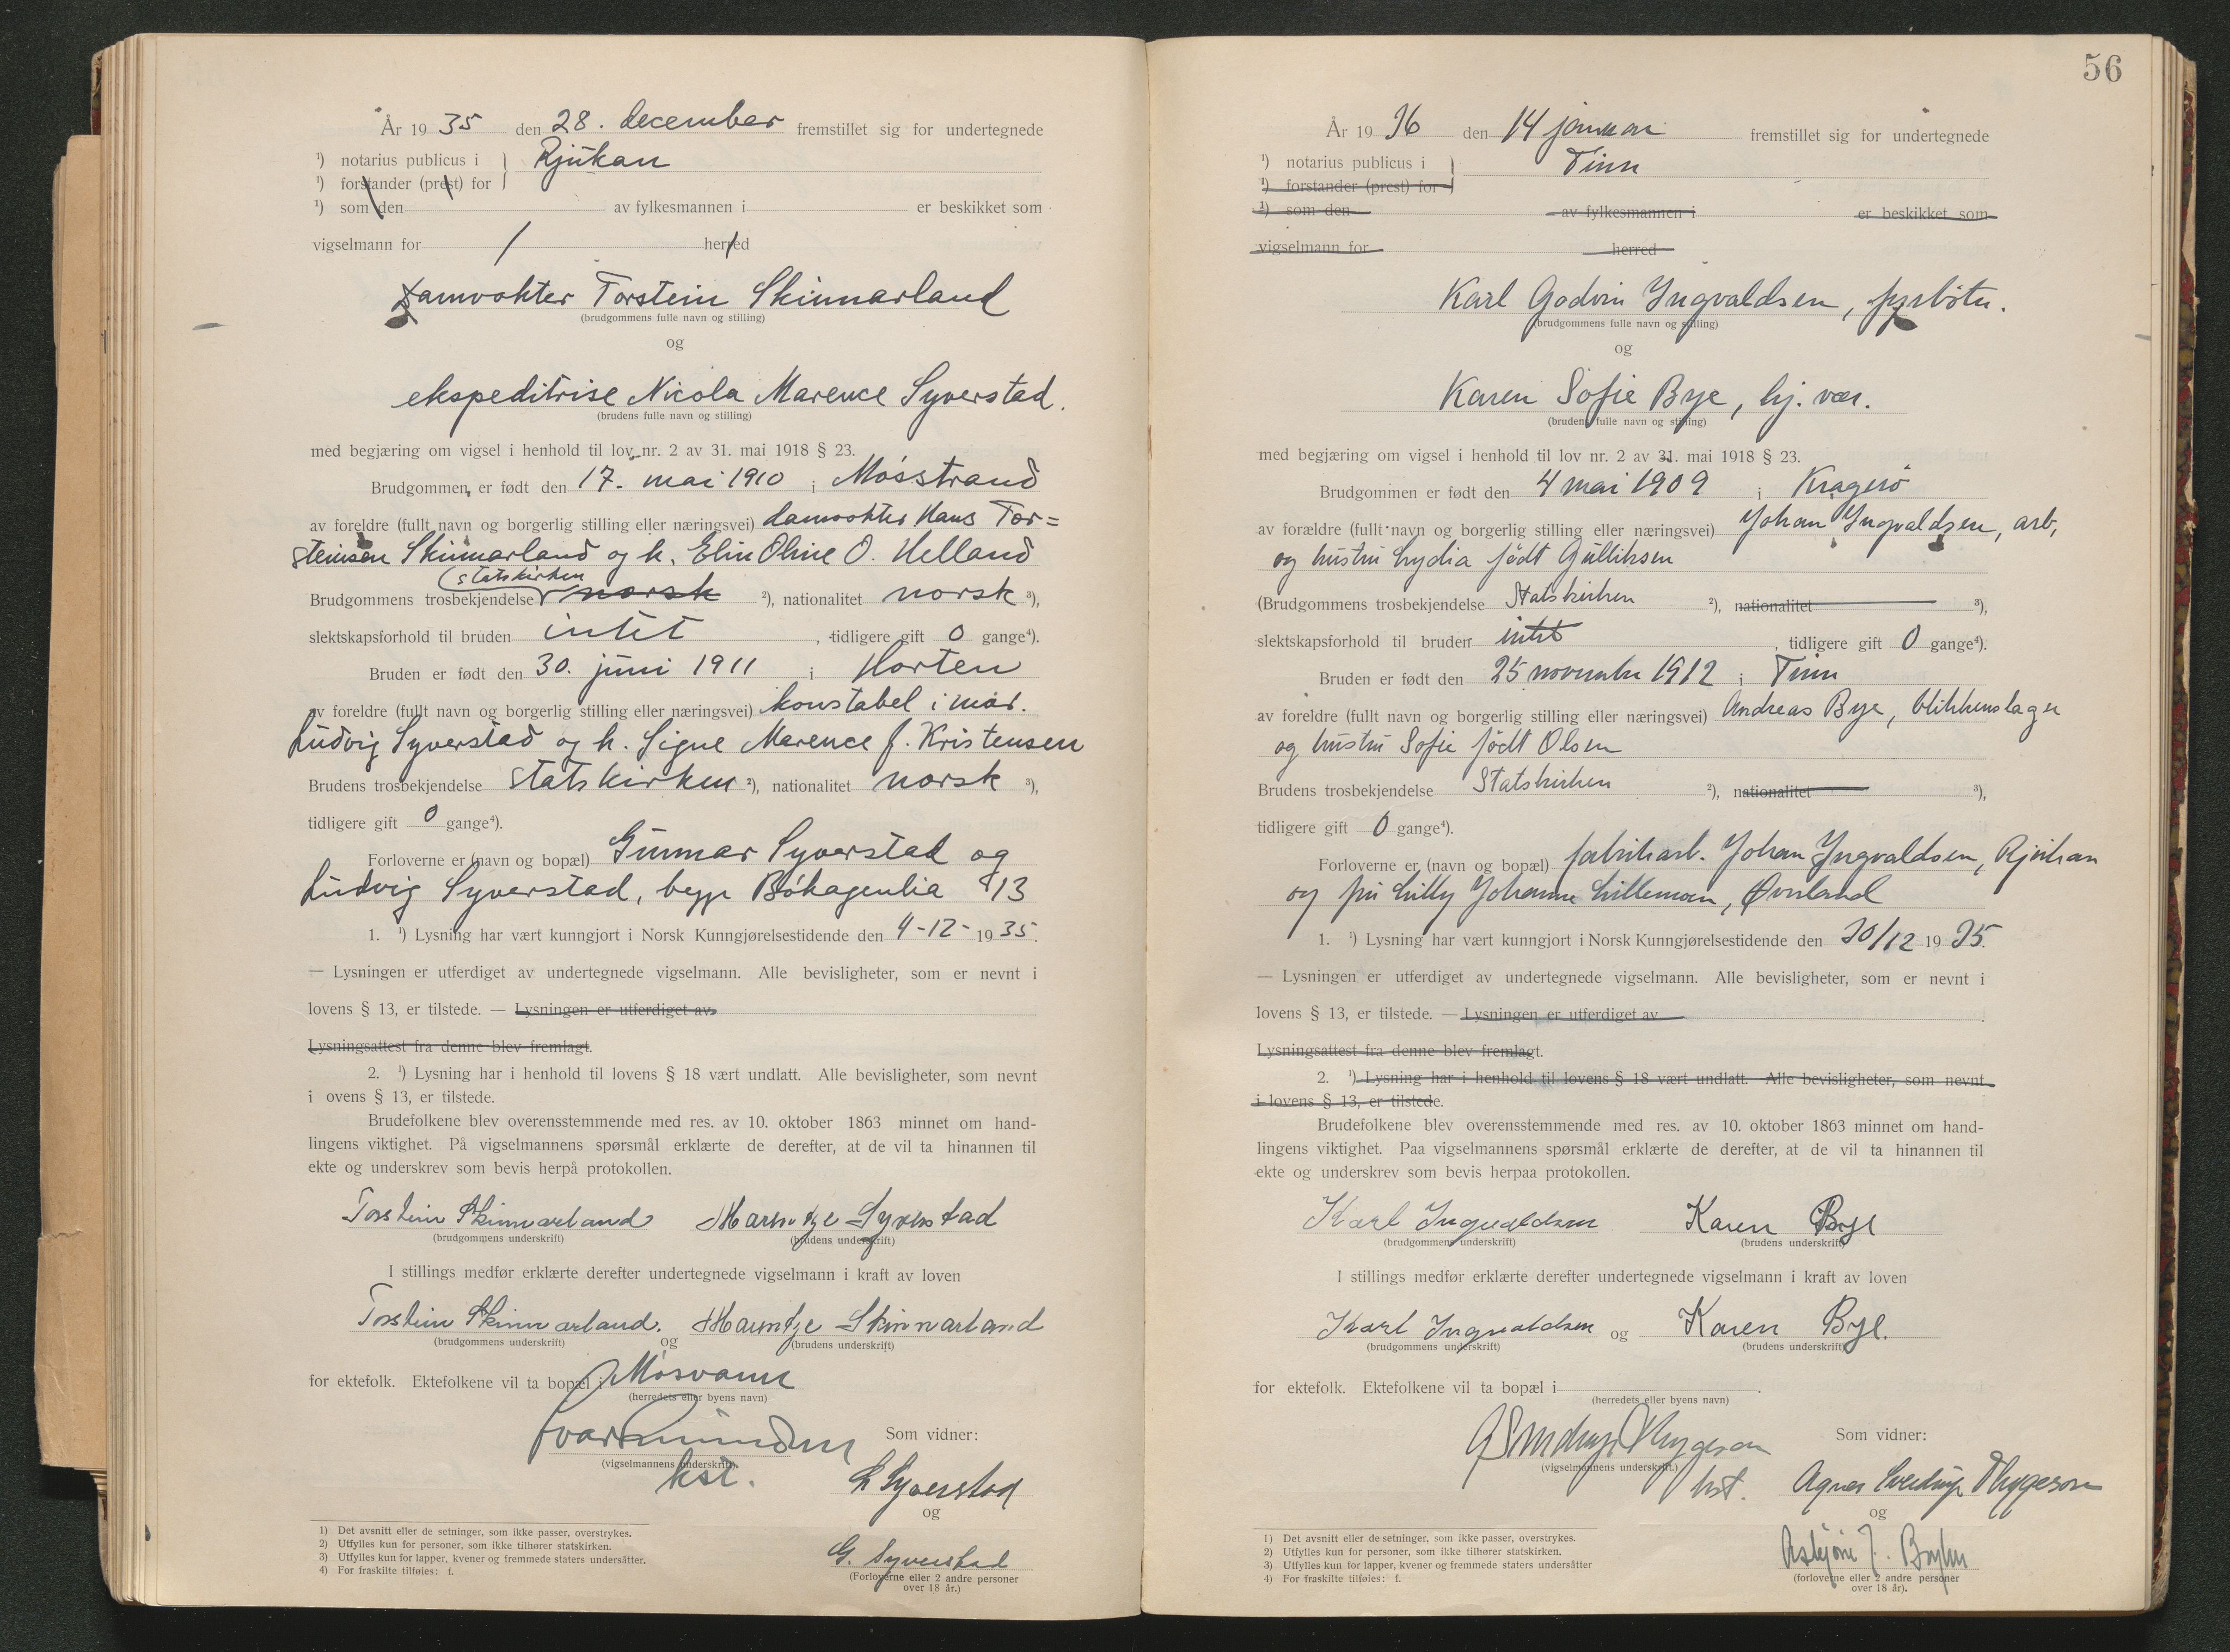 År 1935 den 28. december fremstillet sig for undertegnede
¹) notarius publicus i } Rjukan
¹) forstander (prest) for
¹) som den av fylkesmannen i er beskikket som
vigselmann for herred
Damvokter Torstein Skinnarland
(brudgommens fulle navn og stilling)
og
ekspeditrise Nicola Marence Syverstad.
(brudens fulle navn og stilling)
med begjæring om vigsel i henhold til lov nr. 2 av 31. mai 1918 § 23.
Brudgommen er født den 17. mai 1910 i Mösstrand
av foreldre (fullt navn og borgerlig stilling eller næringsvei) damvokter Hans Tor=
steinsen Skinnarland og h. Elin Oline O. Helland
statskirken
Brudgommens trosbekjendelse norsk ²), nationalitet norsk ³),
slektskapsforhold til bruden intet, tidligere gift 0 gange⁴).
Bruden er født den 30. juni 1911 i Horten
av foreldre (fullt navn og borgerlig stilling eller næringsvei) konstabel i mar.
Ludvig Syverstad og h. Signe Marence f. Kristensen
Brudens trosbekjendelse statskirken ²), nationalitet norsk ³),
tidligere gift 0 gange⁴).
Forloverne er (navn og bopæl) Gunnar Syverstad og
Ludvig Syverstad, begge Bökagenlia 13
1. ¹) Lysning har vært kunngjort i Norsk Kunngjørelsestidende den 4-12-1935.
— Lysningen er utferdiget av undertegnede vigselmann. Alle bevisligheter, som er nevnt i
lovens § 13, er tilstede. — Lysningen er utferdiget av
Lysningsattest fra denne blev fremlagt.
2. ¹) Lysning har i henhold til lovens § 18 vært undlatt. Alle bevisligheter, som nevnt
i ovens § 13, er tilstede.
Brudefolkene blev overensstemmende med res. av 10. oktober 1863 minnet om hand-
lingens viktighet. På vigselmannens spørsmål erklærte de derefter, at de vil ta hinannen til
ekte og underskrev som bevis herpå protokollen.
Torstein Skinnarland Marentze Syverstad
(brudgommens underskrift) (brudens underskrift)
I stillings medfør erklærte derefter undertegnede vigselmann i kraft av loven
Torstein Skinnarland. og Marentze Skinnarland
(brudgommens underskrift) (brudens underskrift)
for ektefolk. Ektefolkene vil ta bopæl i Mösvann
(herredets eller byens navn)
Som vidner:
(vigselmannens underskrift).
kst.
L Syverstad
og
G. Syverstad
(Forloverne eller 2 andre personer
over 18 år.)
1) Det avsnitt eller de setninger, som ikke passer, overstrykes.
2) Utfylles kun for personer, som ikke tilhører statskirken.
3) Utfylles kun for lapper, kvener og fremmede staters undersåtter.
4) For fraskilte tilføies: f.
56
År 1936 den 14 januar fremstillet sig for undertegnede
¹) notarius publicus i } Tinn
¹) forstander (prest) for
¹) som den av fylkesmannen i er beskikket som
vigselmann for herred
Karl Godvin Yngvaldsen, fyrbøter.
(brudgommens fulle navn og stilling)
og
Karen Sofie Bye, hj. vær.
(brudens fulle navn og stilling)
med begjæring om vigsel i henhold til lov nr. 2 av 31. mai 1918 § 23.
Brudgommen er født den 4 mai 1909 i Kragerö
av forældre (fullt navn og borgerlig stilling eller næringsvei) Johan Yngvaldsen, arb,
og hustru Lydia født Gulliksen
(Brudgommens trosbekjendelse Statskirken ²), nationalitet ³),
slektskapsforhold til bruden intet, tidligere gift 0 gange⁴).
Bruden er født den 25 november 1912 i Tinn
av foreldre (fullt navn og borgerlig stilling eller næringsvei) Andreas Bye, blikkenslager
og hustru Sofie født Olsen
Brudens trosbekjendelse Statskirken ²), nationalitet ³),
tidligere gift 0 gange⁴).
Forloverne er (navn og bopæl) fabrikarb. Johan Yngvaldsen, Rjukan
og fru Lilly Johanne Lillemoen, Øverland
1. ¹) Lysning har vært kunngjort i Norsk Kunngjørelsestidende den 30/12 1935.
— Lysningen er utferdiget av undertegnede vigselmann. Alle bevisligheter, som er nevnt i
lovens § 13, er tilstede. — Lysningen er utferdiget av
Lysningsattest fra denne blev fremlagt.
2. ¹) Lysning har i henhold til lovens § 18 vært undlatt. Alle bevisligheter, som nevnt
i lovens § 13, er tilstede.
Brudefolkene blev overensstemmende med res. av 10. oktober 1863 minnet om hand-
lingens viktighet. Paa vigselmannens spørsmål erklærte de derefter, at de vil ta hinannen til
ekte og underskrev som bevis herpaa protokollen.
Karl Ingvaldsen Karen Bye
(brudgommens underskrift) (brudens underskrift)
I stillings medfør erklærte derefter undertegnede vigselmann i kraft av loven
Karl Ingvaldsen og Karen Bye.
(brudgommens underskrift) (brudens underskrift)
for ektefolk. Ektefolkene vil ta bopæl i .
(herredets eller byens navn)
Sverdrup Thygeson Som vidner:
(vigselmannens underskrift.)
kst. Agnes Sverdrup Thygeson
og
Asbjörn J. Bryhn
(forloverne eller 2 andre personer
over 18 år).
1) Det avsnitt eller de setninger, som ikke passer, overstrykes.
2) Utfylles kun for personer, som ikke tilhører statskirken.
3) Utfylles kun for lapper, kvener og fremmede staters undersåtter
4) For fraskilte tilføies: f.